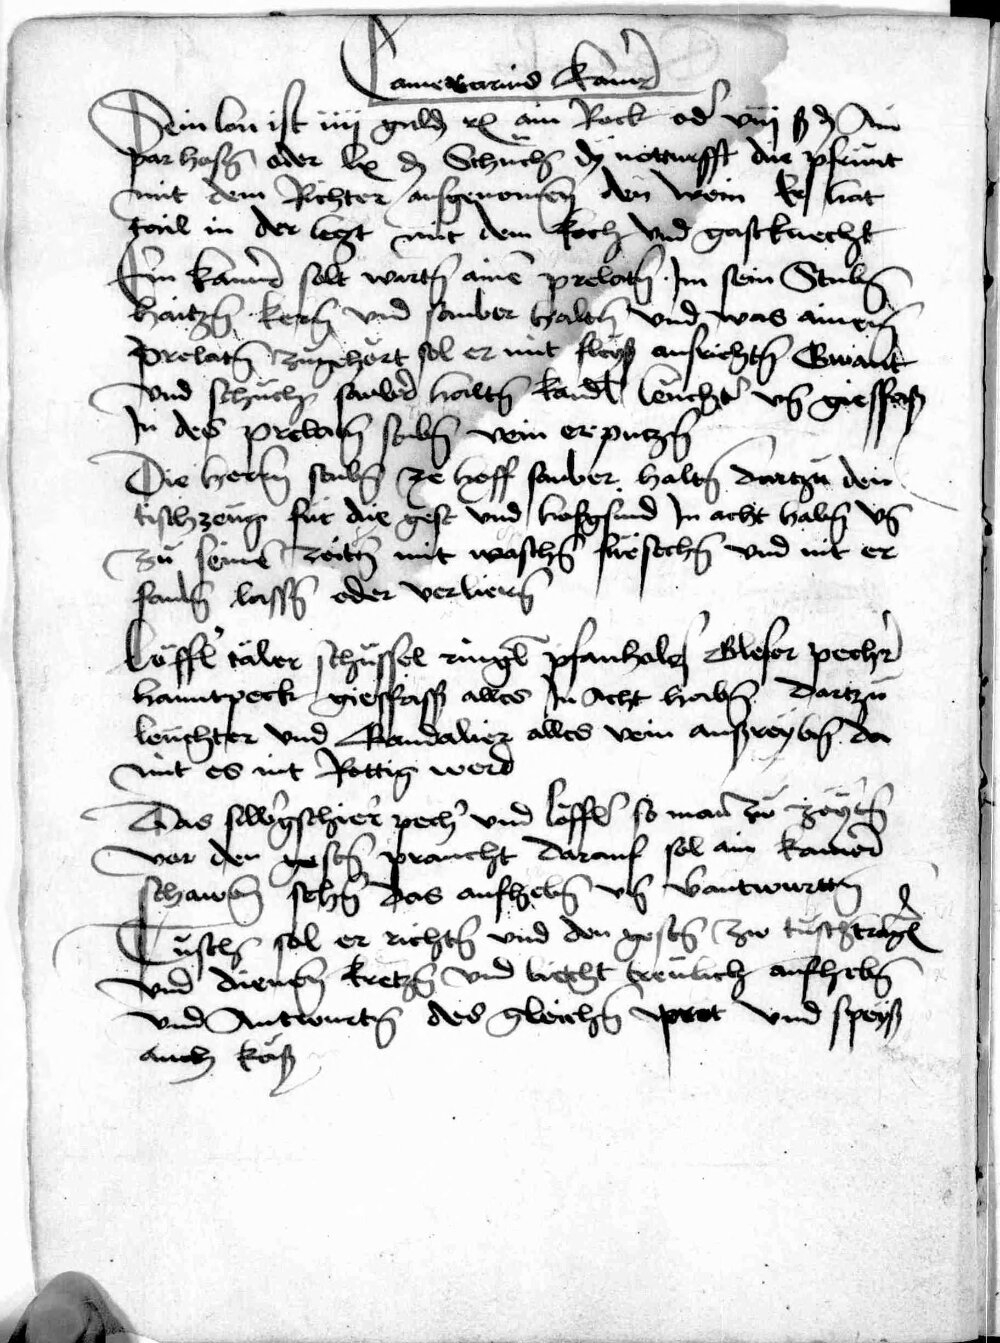 Camerarius Kamrer
Sein lon ist iiij guld ain Rock od viij ß d Ain
par hosn oder lx d Schuch dy notturfft die pfrünt
mit dem Richter aufgenomen den wein Er hat
tail in der legt mit dem koch und gastknecht
Ein kamrer solt wartn aine prelatn Im sein Stubn
haitzn kern und sauber haltn und was ainem
Prelatn zugehört sol er mit fleyß ausrichtn Gwant
und schüch saubr haltn kandl leuchter un giessfaß
In des prelatn stubn rein er putzn
Die herrn stubn ze hoff sauber haltn dartzü den
tischzeug für die gest und hofgsind In acht habn un
zü seine zeitn mit waschn und nit er
fauln lassn oder verliern
Löffl täler schüssel ringl pfanholz Gleser pechr
hanntpeck giessfass alles In Acht habn dartzu
leuchter und Kandalier alles rein außreybn da
mit es nit Rottig werd
Das silbrgschier pechr und löffl so man zü zeytn
vor den gestn praucht darauf sol ain kamrer
schawen sehn das aufhebn un vantwurttn
Tüsch sol er richtn und den gestn zw tüsch tragn
und dienen kretzn und liecht treulich aufhebn
und Antwurtn des gleichn prot und speyß
auch käß